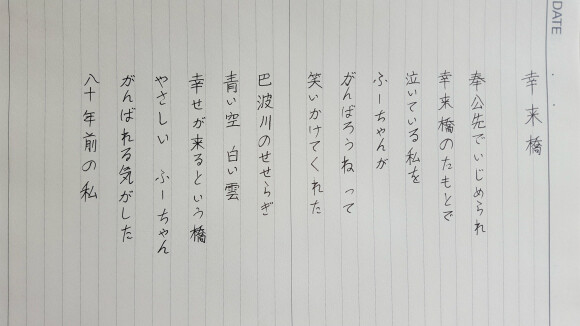 DATE
幸来橋
奉公先でいじめられ
幸来橋のたもとで
泣いている私を
ふーちゃんが
がんばろうねって
笑いかけてくれた
巴波川のせせらぎ
青い空 白い雲
幸せが来るという橋
やさしい ふーちゃん
がんばれる気がした
八十年前の私